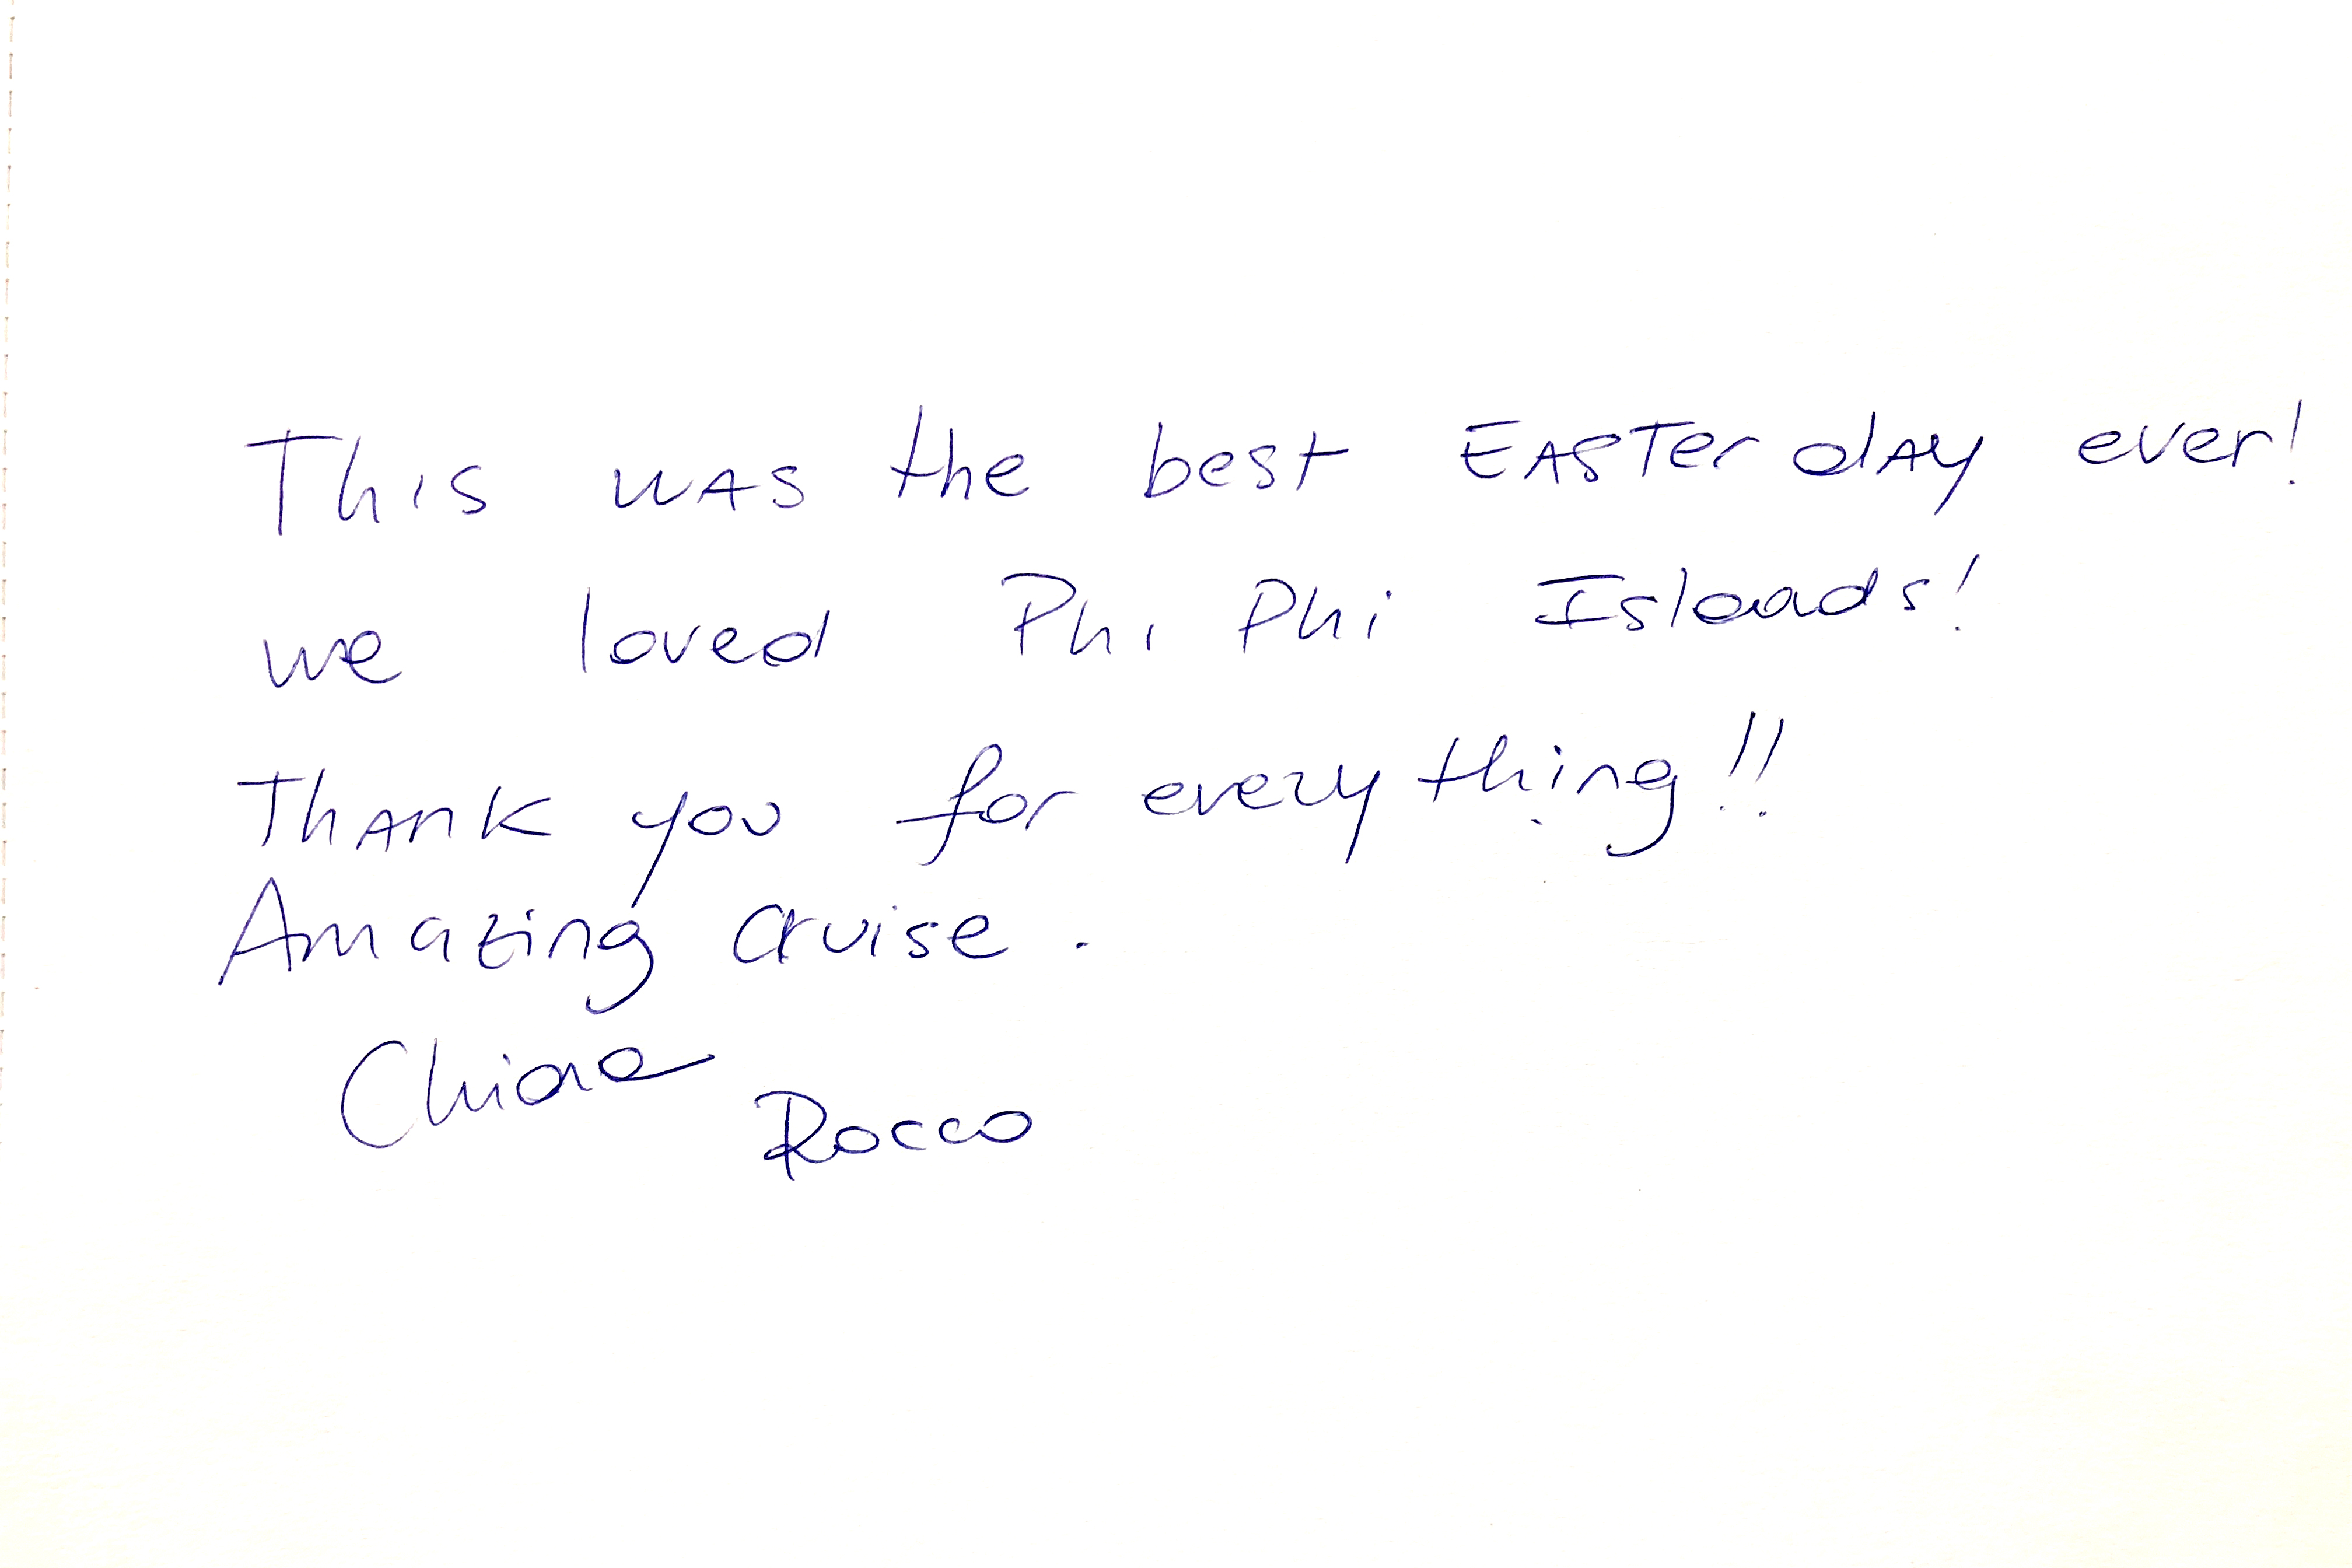 This was the best EASTer day ever!
we loved Phi Phi Islands!
Thank you for every thing!!
Amazing cruise.
Chiara
Rocco